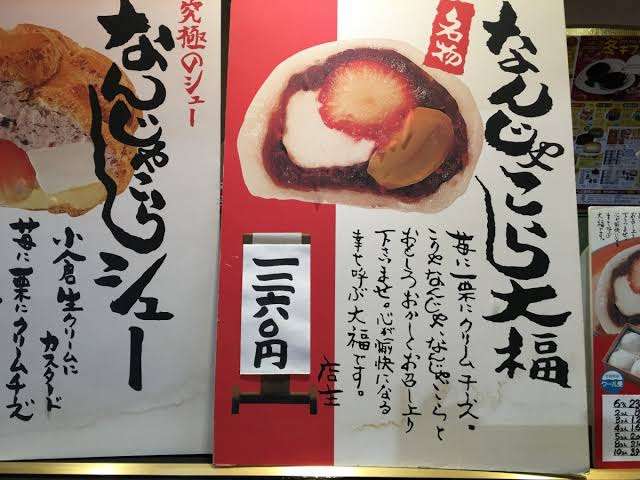 名物
なんじゃこら大福
苺に栗にクリームチーズ。
こりゃなんじゃ、なんじゃこらと
おもしろおかしくお召し上り
下さいませ。心が愉快になる
幸せ呼ぶ大福です。
店主
三六〇円
究極のシュー
なんじゃこらシュー
小倉生クリームに
カスタード
苺に栗にクリームチーズ